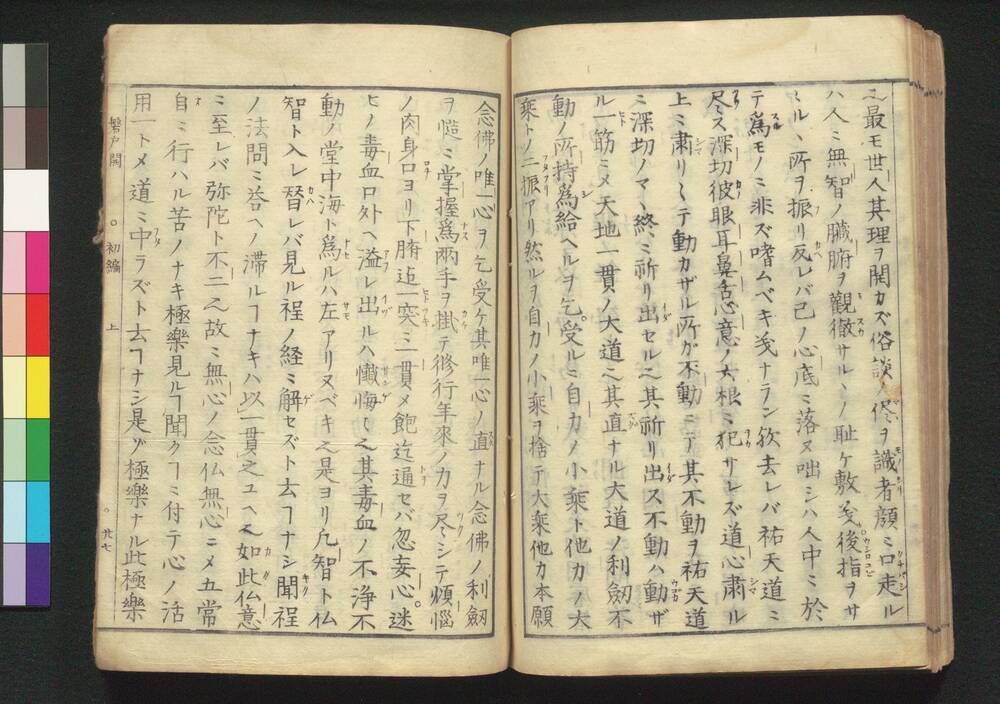 之最モ世人其理ヲ開カズ俗談ノ侭ヲ識者顔ミ口走ル
ハ人ミ無智ノ臓腑ヲ觀徹サルヽノ耻ケ敷叓後指ヲサ
ルヽ所ヲ振リ反レバ己ノ心底ミ落ヌ咄シハ人中ミ於
テ爲モノミ非ズ嗜ムベキ叓ナラン欤去レバ祐天道ミ
尽ス深切彼眼耳鼻舌心意ノ六根ミ犯サレズ道心肅ル
上ミ肅リ〳〵テ動カザル所ガ不動ミテ其不動ヲ祐天道
ミ深切ノマヽ終ミ祈リ出セル之其祈リ出ス不動ハ動ザ
ル一筋ミメ天地一貫ノ大道之其直ナル大道ノ利劔不
動ノ所持爲給ヘルヲ乞受ルミ自カノ小乘ト他カノ大
乘トノ二振アリ然ルヲ自カノ小乘ヲ捨テ大乘他カ本願
念佛ノ唯一心ヲ乞受ケ其唯一心ノ直ナル念佛ノ利劔
ヲ慥ミ掌握爲兩手ヲ掛テ修行年來ノカヲ尽シテ煩惱
ノ肉身口ヨリ下腑迠一突ミ貫メ飽迄通セバ忽妄心迷
ヒノ毒血口外ヘ溢レ出ルハ懺悔之其毒血ノ不浄不
動ノ堂中海ト爲ルハ左アリヌベキ之是ヨリ凡智ト仏
智ト入レ替レバ見ル程ノ経ミ解セズト去ヿナシ聞程
ノ法問ミ答ヘノ滯ルヿナキハ以一貫之ユヘ之如此仏意
ミ至レバ弥陀ト不二之故ミ無心ノ念仏無心ニメ五常
自ミ行ハル苦ノナキ極樂見ルヿ聞クヿミ付テ心ノ活
用一トメ道ミ中ラズト去ヿナシ是ゾ極樂ナル此極樂
磐戸開 ○初編 上 ○廿七